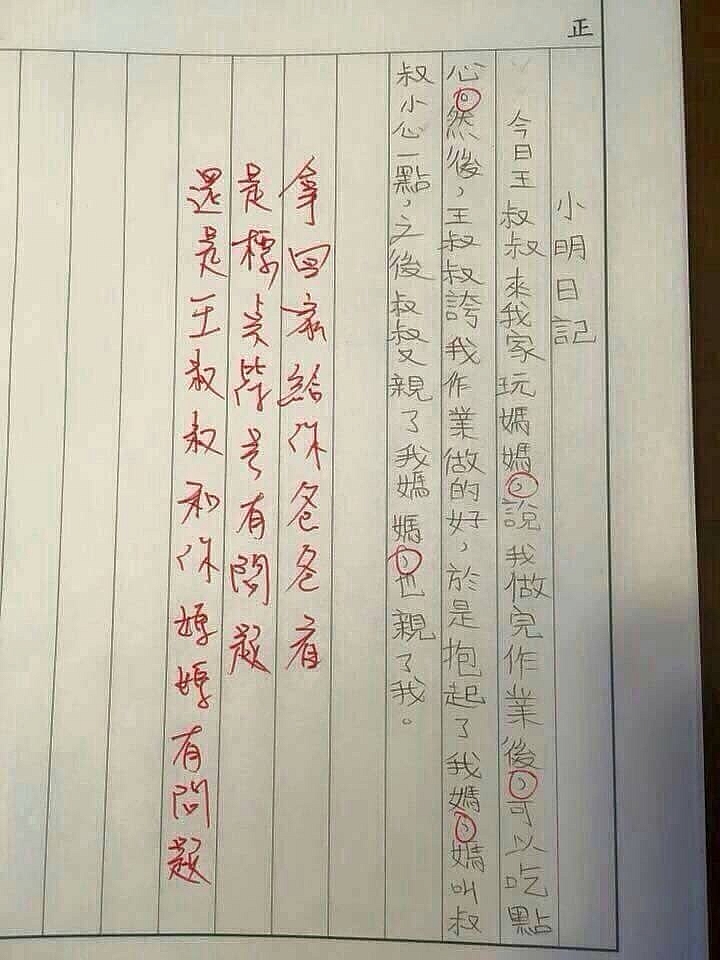 正
小明日記
今日王叔叔來我家玩媽媽，說我做完作業後，可以吃點
心。然後，王叔叔誇我作業做的好，於是抱起了我媽，媽叫叔
叔小心一點，之後叔叔親了我媽媽，也親了我。
拿回家給你爸爸看
是標點符号有問題
還是王叔叔和你媽媽有問題